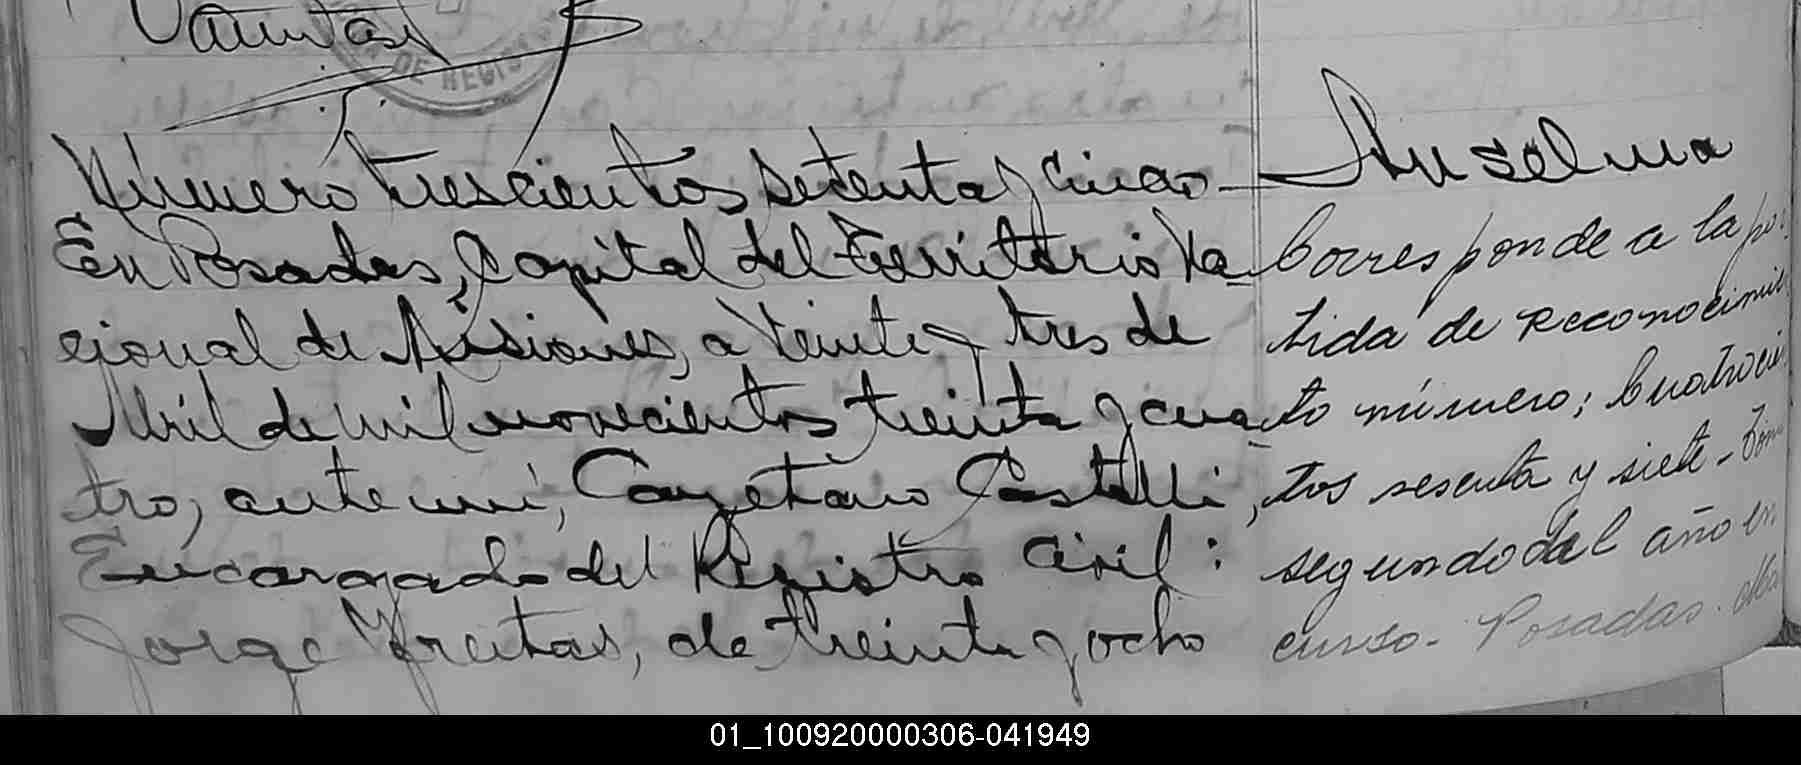 DE REGIS
Número trescientos setenta y cinco
En Posadas, Capital del Territorio Na-
cional de Misiones, a veinte y tres de
Abril de mil novecientos treinta y cua-
tro, ante mí, Cayetano Castelli,
Encargado del Registro Civil:
Jorge Freitas, de treinta y ocho
Anselma
Corresponde a la par
tida de reconocimie
to número; Cuatrocie
tos sesenta y siete - Tom
segundo del año en
curso - Posadas.
01_100920000306-041949